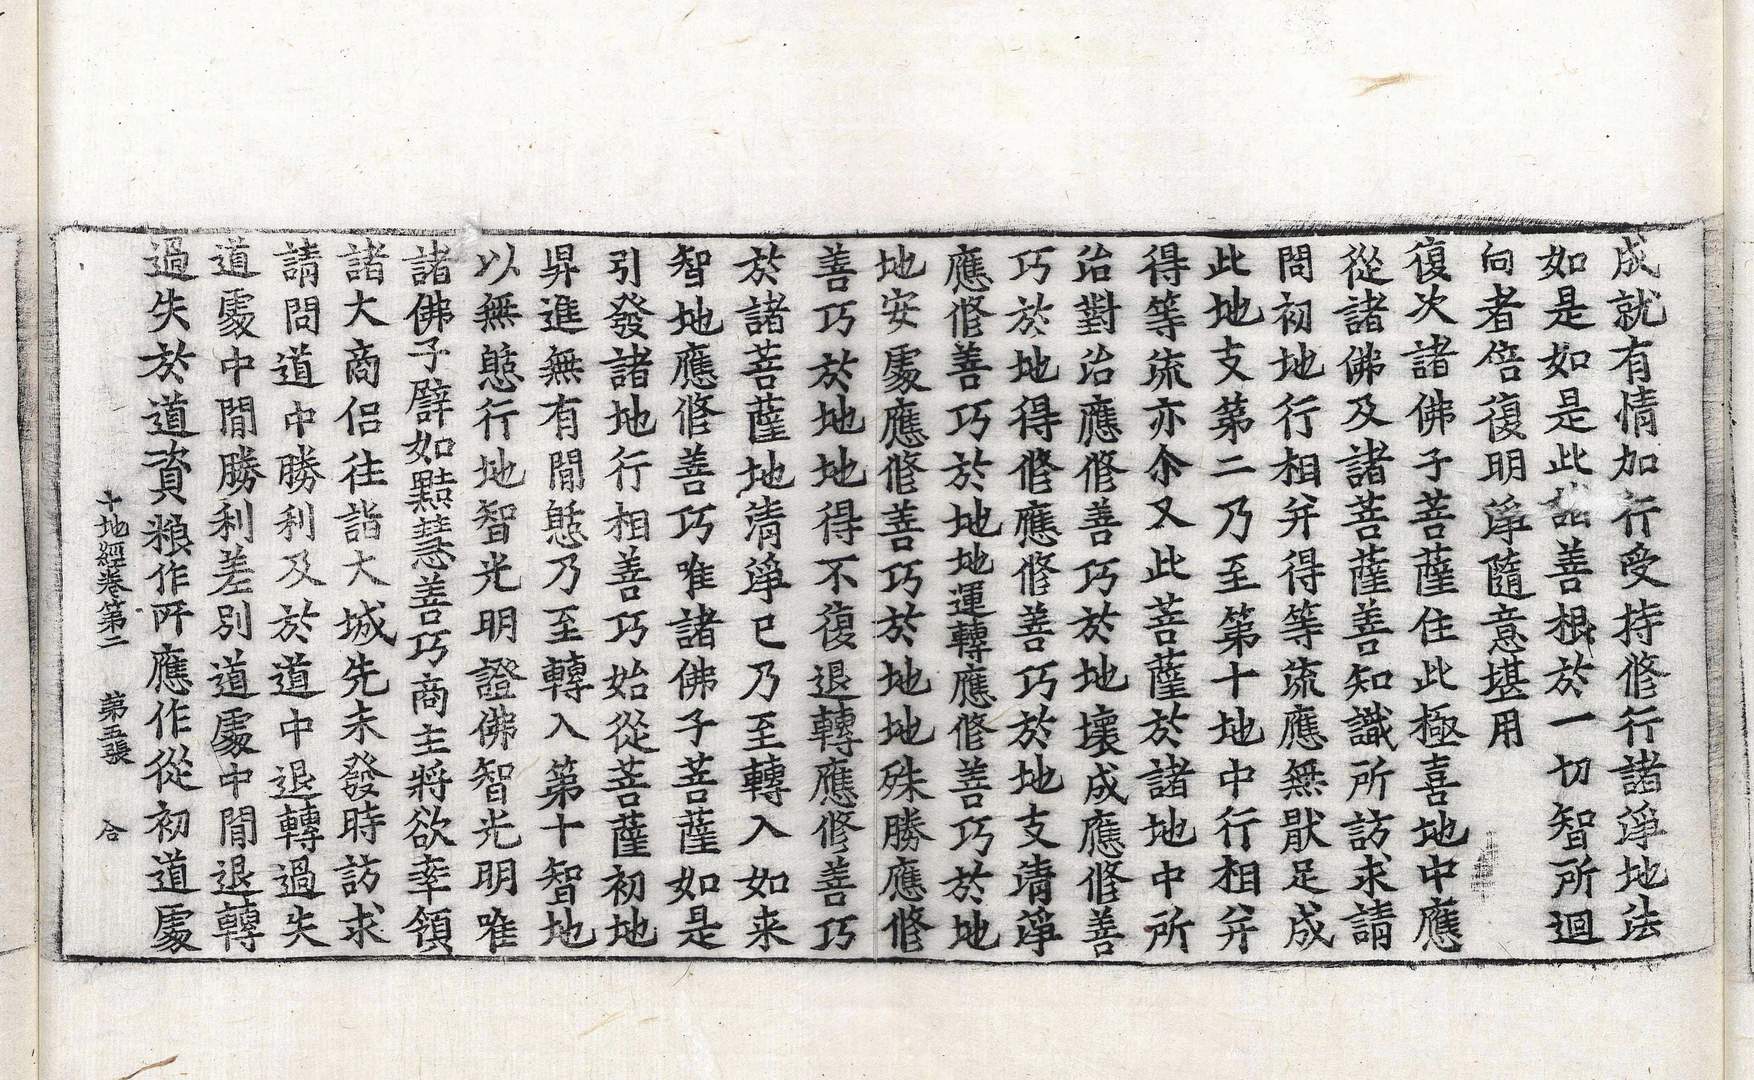 成就有情加行受持修行諸淨地法
如是如是此諸善根於一切智所迴
向者倍復明淨隨意堪用
復次諸佛子菩薩住此極喜地中應
從諸佛及諸菩薩善知識所訪求請
問初地行相并得等流應無猒足成
此地支第二乃至第十地中行相并
得等流亦尒又此菩薩於諸地中所
治對治應修善巧於地壞成應修善
巧於地得修應修善巧於地支清淨
應修善巧於地地運轉應修善巧於地
地安處應修善巧於地地殊勝應修
善巧於地地得不復退轉應修善巧
於諸菩薩地清淨已乃至轉入如来
智地應修善巧唯諸佛子菩薩如是
引發諸地行相善巧始從菩薩初地
昇進無有間憩乃至轉入第十智地
以無憩行地智光明證佛智光明唯
諸佛子譬如黠慧善巧商主將欲率領
諸大商侣往詣大城先未發時訪求
請問道中勝利及於道中退轉過失
道處中間勝利差别道處中間退轉
過失於道資粮作所應作從初道處
十地經卷第二　第五張　合